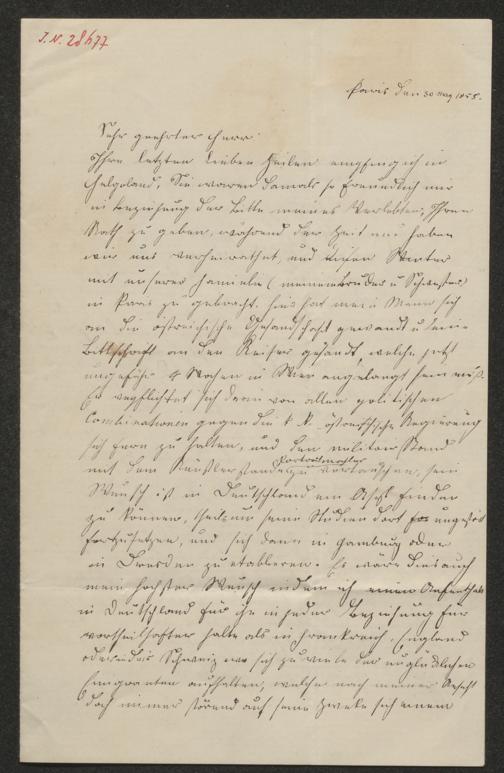 J. N. 28477
Paris den 30 May 1855.
Sehr geehrter Herr
Ihre letzten lieben Zeilen empfing ich in
Helgoland, Sie waren damals so freundlich mir
in Beziehung der Bitte meines Verlobten, Ihren
Rath zu geben, während der Zeit nun haben
wir uns verheirathet, und diesen Winter
mit unserer Familie (meinem Bruder u Schwester)
in Paris zu gebracht. Hier hat mein Mann sich
an die östreichische Gesandschaft gewandt u seine
Bittschrift an den Kaiser gesandt, welche jetzt
ungefähr 4 Wochen in Wien angelangt sein muß.
Er verpflichtet sich darin von allen politischen
Combinationen gegen die k. k. östreichische Regierung
sich fern zu halten, und den militair Stand
mit dem Künstlerstande zu vertauschen, sein
Wunsch ist in Deutschland ein Asyl finden
zu können, theils um seine Studien dort ungestört
fortzusetzen, und sich dann in Hamburg oder
in Dresden zu etabliren. Es wäre dies auch
mein höchster Wunsch indem ich einen Aufenthalt
in Deutschland für ihn in jeder Beziehung für
vortheilhafter halte als in Frankreich, England
oder der Schweiz wo sich zu viele der unglücklichen
Emigranten aufhalten, welche nach meiner Ansicht
doch immer störend auf seine Zwecke sich einem